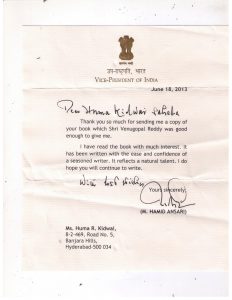 उप-राष्ट्रपति, भारत
VICE-PRESIDENT OF INDIA
June 18, 2013
Dear Huma Kidwai Saheba
Thank you so much for sending me a copy of
your book which Shri Venugopal Reddy was good
enough to give me.
I have read the book with much interest. It
has been written with the ease and confidence of
a seasoned writer. It reflects a natural talent. I do
hope you will continue to write.
With best wishes
Yours sincerely,
(M. HAMID ANSARI)
Ms. Huma R. Kidwai,
8-2-469, Road No. 5,
Banjara Hills,
Hyderabad-500 034